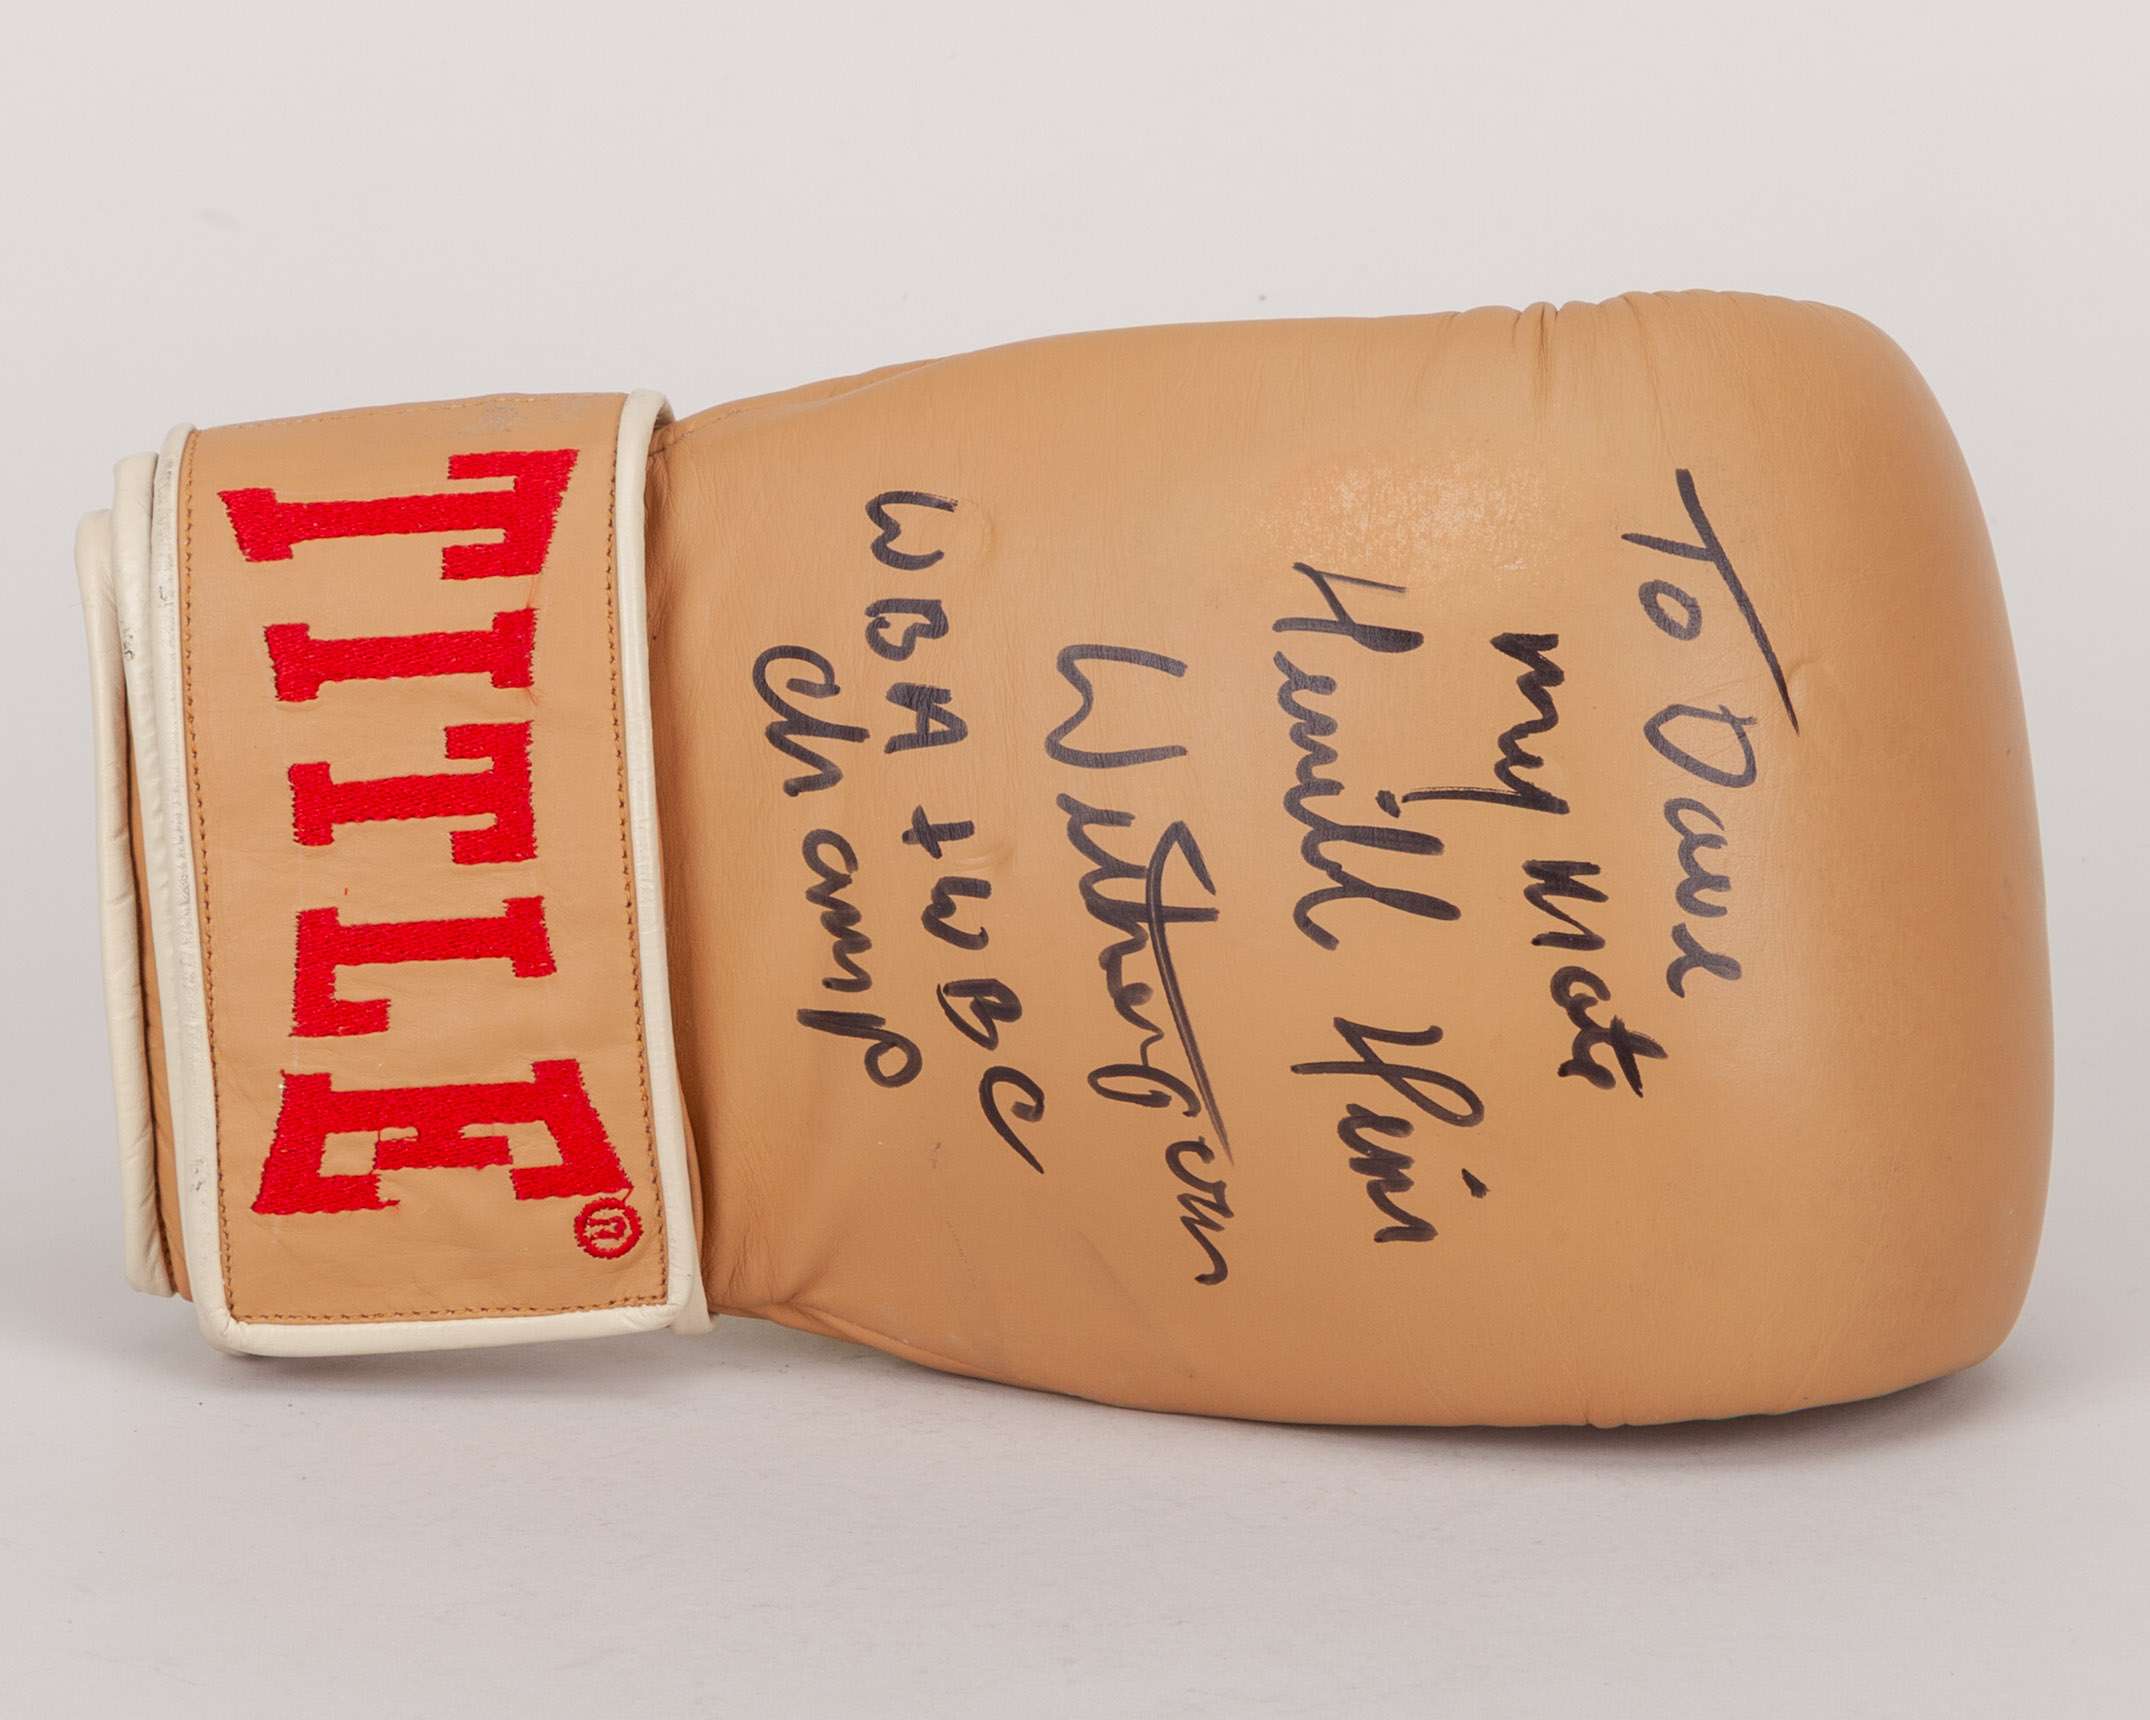 To Dave
my Mate
Tim
Witherspoon
WBA + WBC
Champ
TITLE®